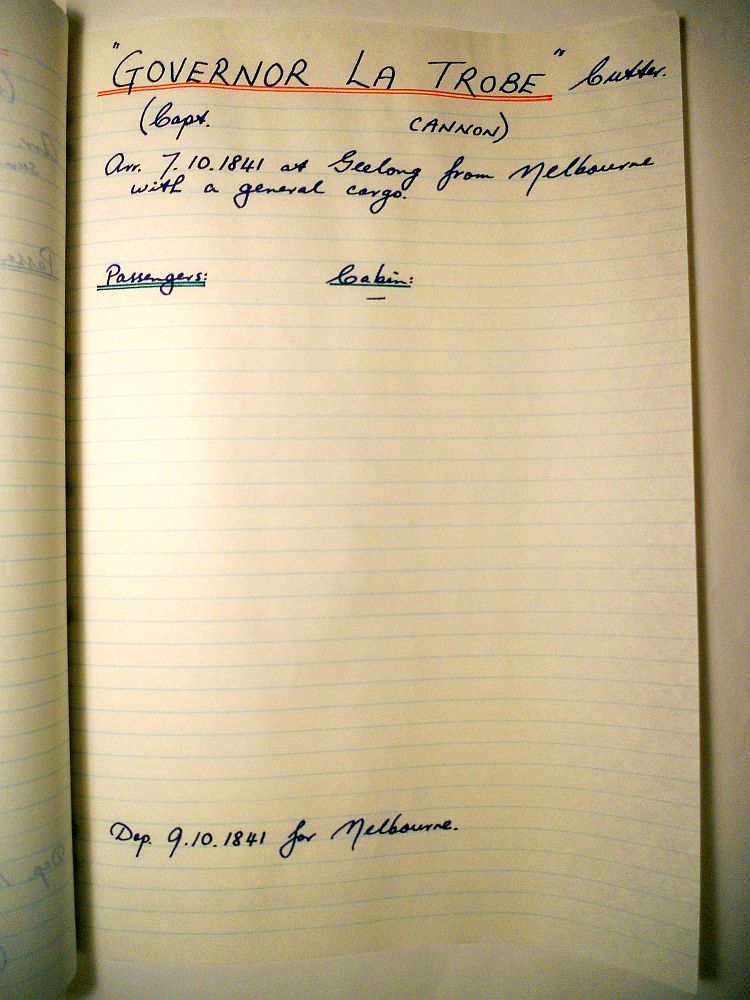 "GOVERNOR LA TROBE" Cutter.
(Capt. CANNON)
Arr. 7.10.1841 at Geelong from Melbourne
with a general cargo.
Passengers: Cabin:
—
Dep. 9.10.1841 for Melbourne.